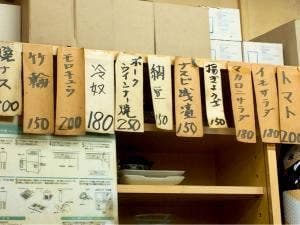 トマト
200
イモサラダ
180
マカロニサラダ
180
揚ぎょうざ
150
ナスビ浅漬
150
納豆
150
ポークウインナー焼
250
冷奴
180
モロキュウ
200
竹輪
150
焼ナス
200